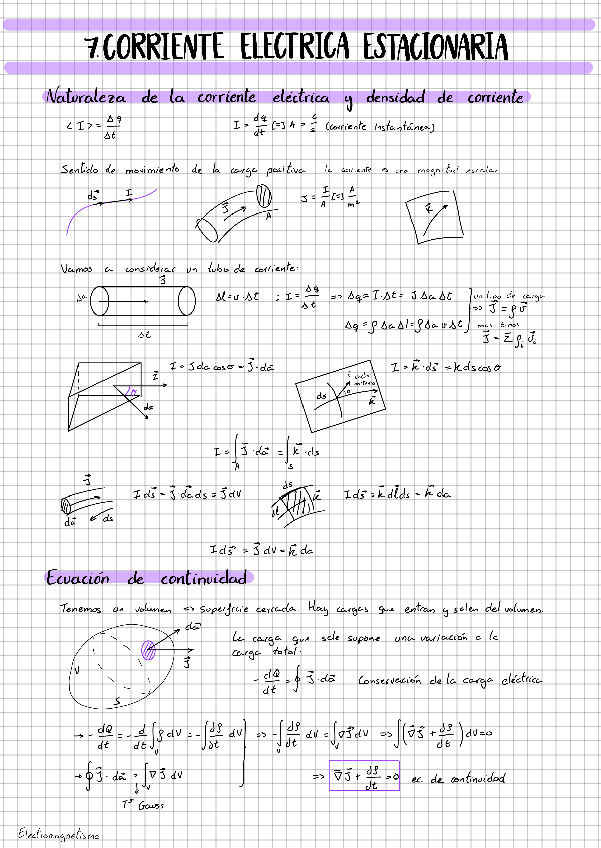 7. CORRIENTE ELECTRICA ESTACIONARIA
Naturaleza de la corriente eléctrica y densidad de corriente
<I> = Δq/Δt    I = dq/dt [=] A = C/s (corriente instantánea)
Sentido de movimiento de la carga positiva    la corriente es una magnitud escalar
ds⃗    I    J⃗    A    J = I/A [=] A/m²    K⃗
Vamos a considerar un tubo de corriente:
Δa    J⃗    Δl = v·Δt ; I = Δq/Δt => Δq = I·Δt = J Δa Δt    un tipo de carga
=> J⃗ = ρ v⃗
Δt    Δq = ρ Δa Δl = ρ Δa v Δt    mas tipos
J⃗ = Σ ρᵢ v⃗ᵢ
I = J da cosθ = J⃗·da⃗    I = K⃗·ds⃗ = K ds cosθ
I⃗    da⃗    ds    K⃗
I = ∫_A J⃗·da⃗ = ∫_S K⃗·ds
J⃗    da⃗    ds    I ds⃗ = J⃗ da⃗ ds = J⃗ dV    ds    dl    K⃗    I ds⃗ = K⃗ dl ds = K⃗ da
I ds⃗ = J⃗ dV = K⃗ da
Ecuación de continuidad
Tenemos un volumen => superficie cerrada. Hay cargas que entran y salen del volumen.
da⃗    J⃗    V    S
La carga que sale supone una variación a la
carga total:
- dQ/dt = ∮ J⃗·da⃗    Conservación de la carga eléctrica
→ - dQ/dt = - d/dt ∫_V ρ dV = - ∫ dρ/dt dV    => - ∫_V dρ/dt dV = ∫_V ∇J⃗ dV => ∫(∇⃗J⃗ + dρ/dt) dV = 0
→ ∮ J⃗·da⃗ = ∫_V ∇J⃗ dV    => ∇⃗J⃗ + dρ/dt = 0    ec. de continuidad
Tª Gauss
Electromagnetismo